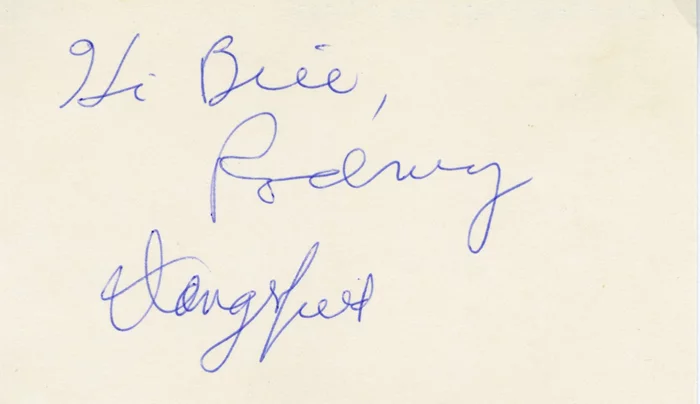 Hi Bill,
Rodney
Dangerfield